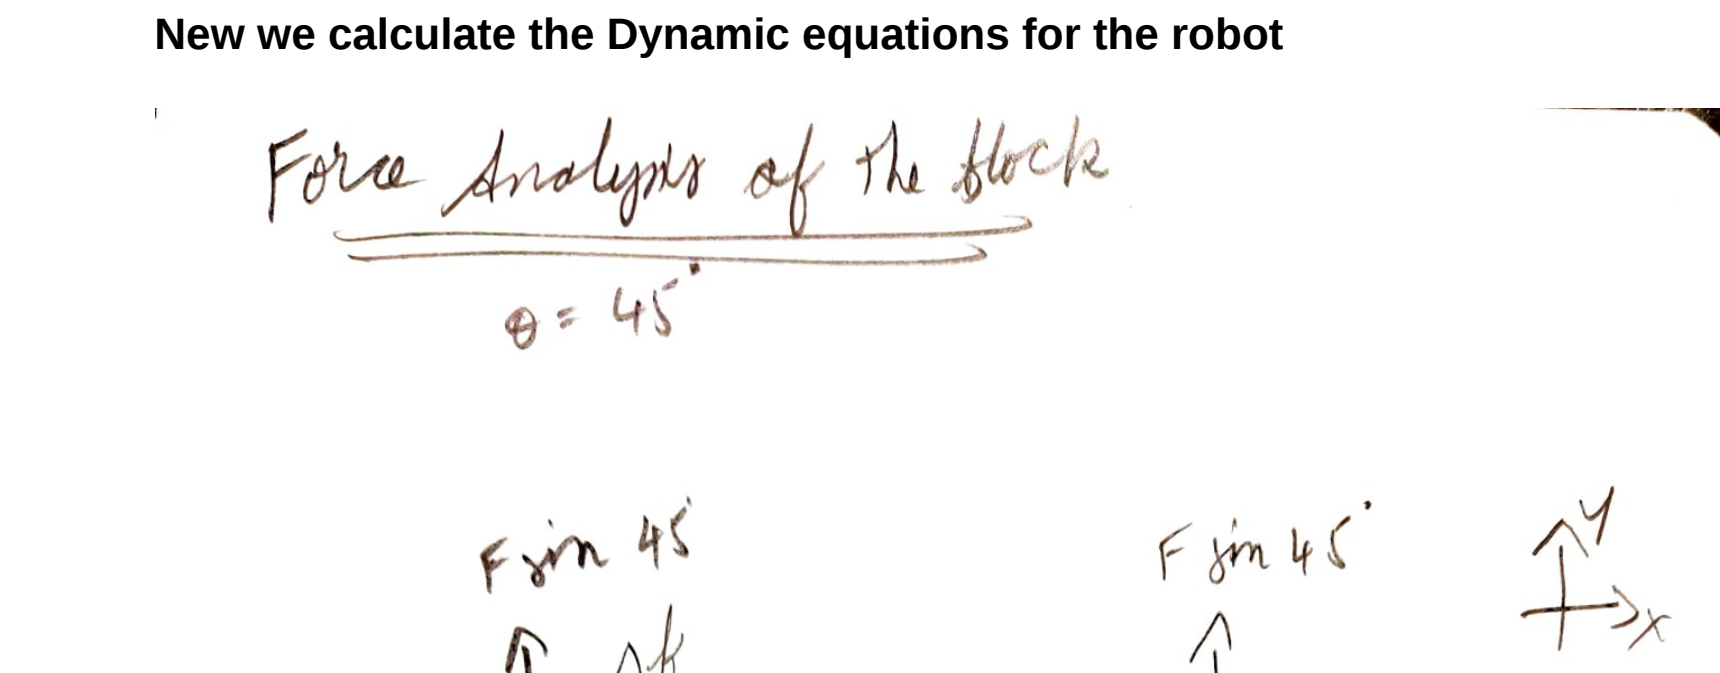 New we calculate the Dynamic equations for the robot
Force Analysis of the block
θ = 45°
F sin 45° F sin 45° y
x